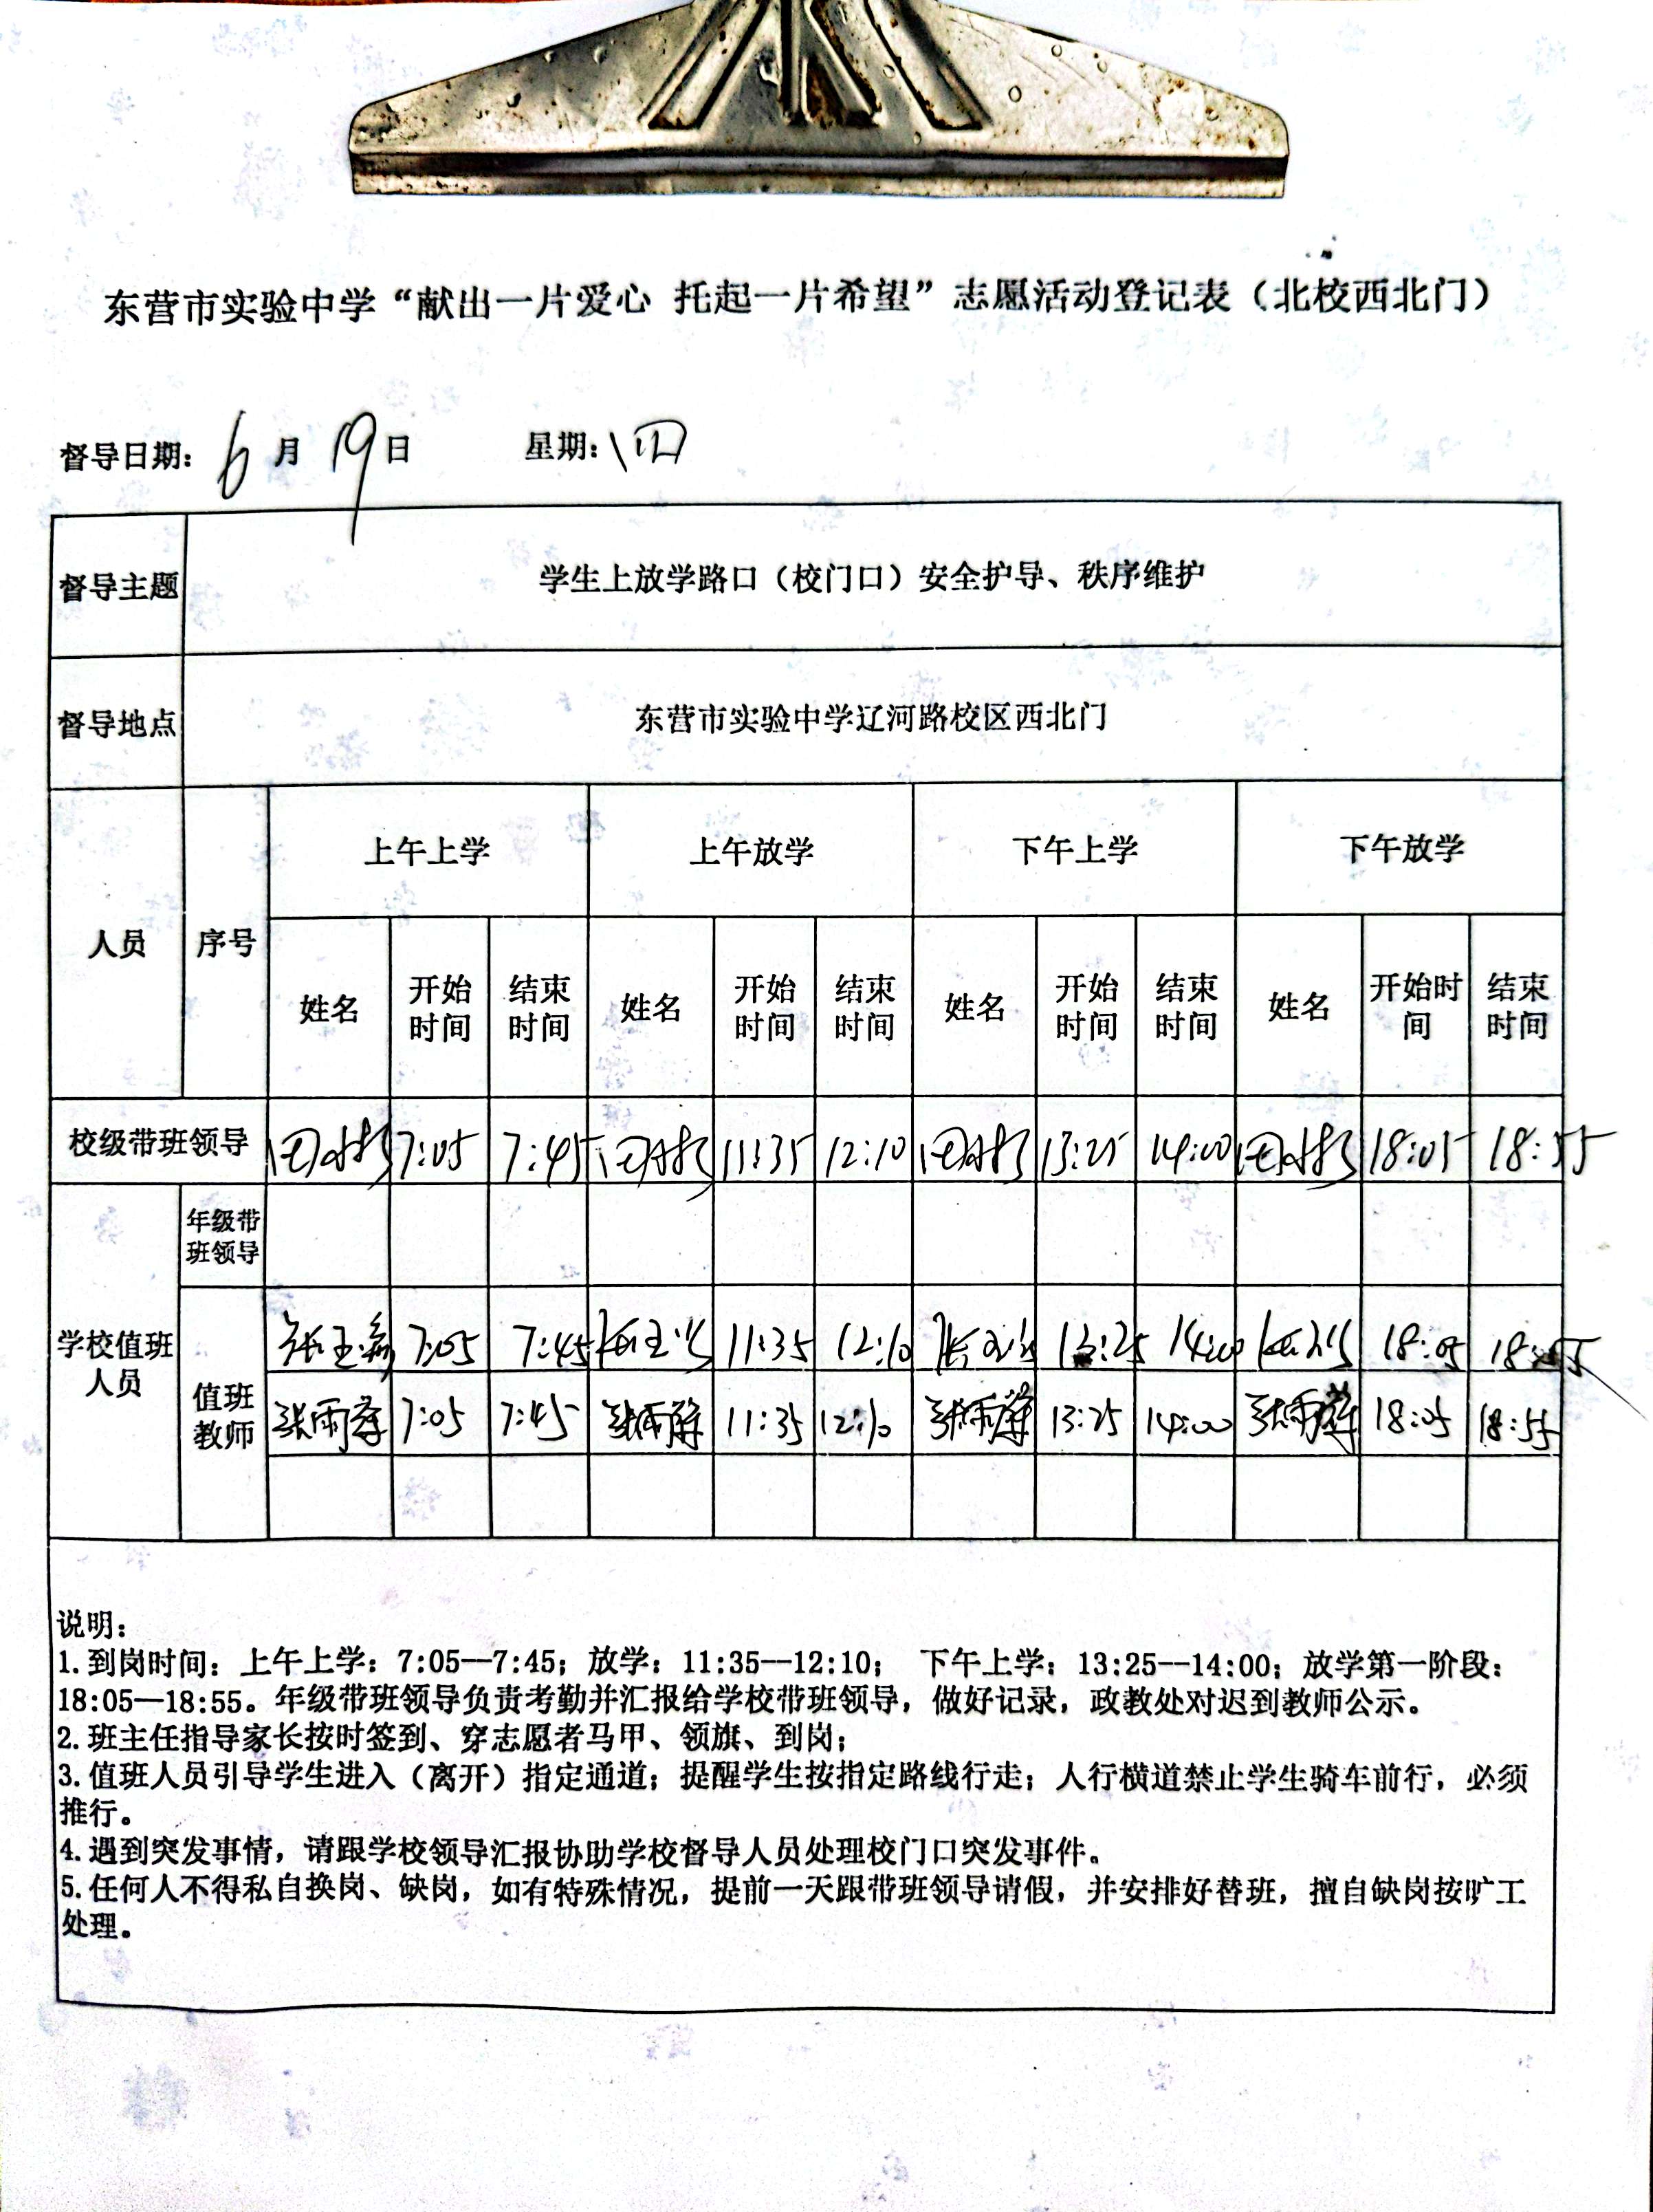 东营市实验中学“献出一片爱心 托起一片希望”志愿活动登记表（北校西北门）
督导日期：6月19日 星期：四
督导主题 学生上放学路口（校门口）安全护导、秩序维护
督导地点 东营市实验中学辽河路校区西北门
人员 序号 上午上学 上午放学 下午上学 下午放学
姓名 开始时间 结束时间 姓名 开始时间 结束时间 姓名 开始时间 结束时间 姓名 开始时间 结束时间
校级带班领导 7:05 7:45 11:35 12:10 13:25 14:00 18:05 18:55
年级带班领导
学校值班人员 值班教师
7:05 7:45 11:35 12:10 13:25 14:00 18:05 18:55
7:05 7:45 11:35 12:10 13:25 14:00 18:05 18:55
说明：
1.到岗时间：上午上学：7:05—7:45；放学：11:35—12:10； 下午上学：13:25—14:00；放学第一阶段：
18:05—18:55。年级带班领导负责考勤并汇报给学校带班领导，做好记录，政教处对迟到教师公示。
2.班主任指导家长按时签到、穿志愿者马甲、领旗、到岗；
3.值班人员引导学生进入（离开）指定通道；提醒学生按指定路线行走；人行横道禁止学生骑车前行，必须
推行。
4.遇到突发事情，请跟学校领导汇报协助学校督导人员处理校门口突发事件。
5.任何人不得私自换岗、缺岗，如有特殊情况，提前一天跟带班领导请假，并安排好替班，擅自缺岗按旷工
处理。